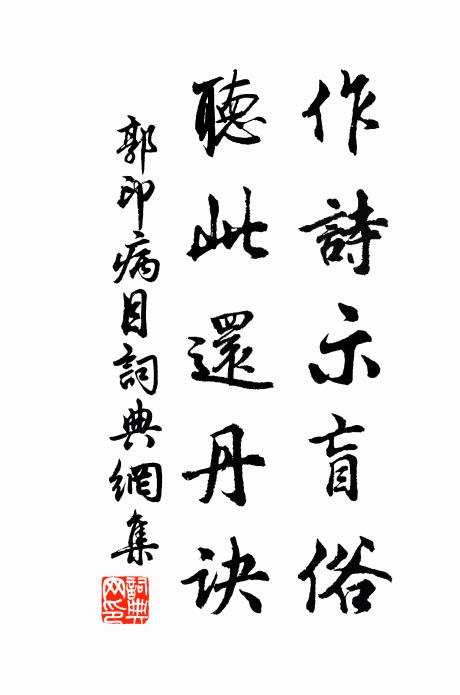 作詩示盲俗
聽此還丹訣
郭印病目詞典網集
詞典網印